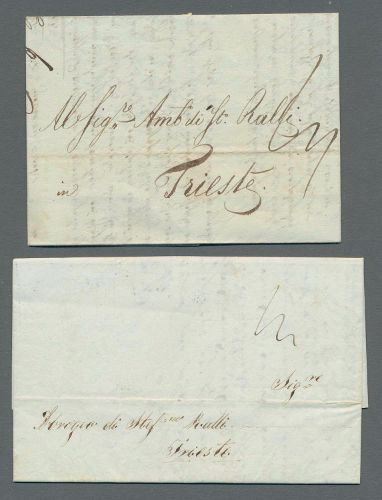 Al Sig.re Amb.o di St. Ralli.
in Trieste.
Sig.re
di Stef.no Ralli
Trieste